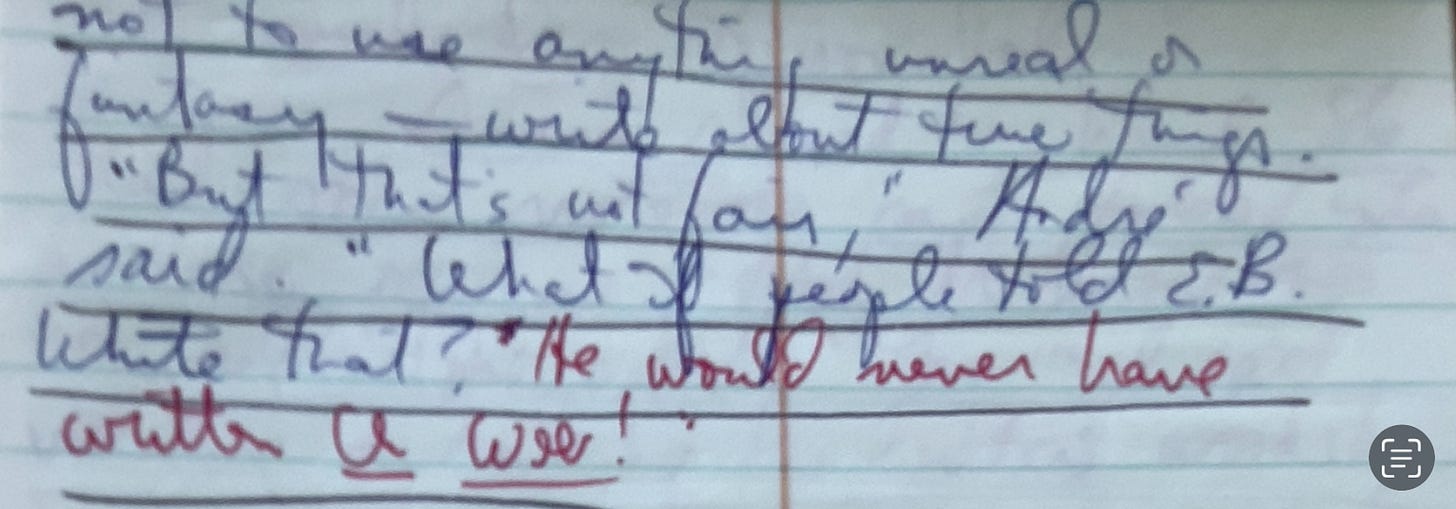 not to use anything unreal or
fantasy — write about true things.
"But that's not fair," Andre
said. "What if people told E.B.
White that? "He would never have
written a